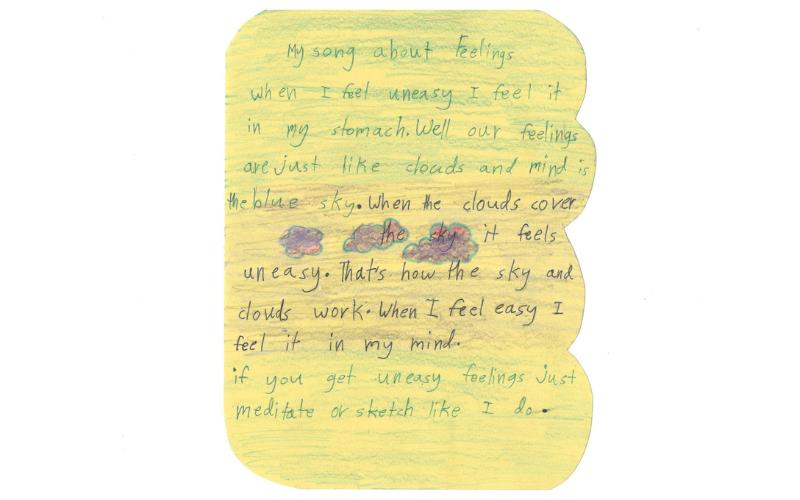 My song about Feelings
when I feel uneasy I feel it
in my stomach. Well our feelings
are just like clouds and mind is
the blue sky. When the clouds cover
the sky it feels
uneasy. That's how the sky and
clouds work. When I feel easy I
feel it in my mind.
if you get uneasy feelings just
meditate or sketch like I do.